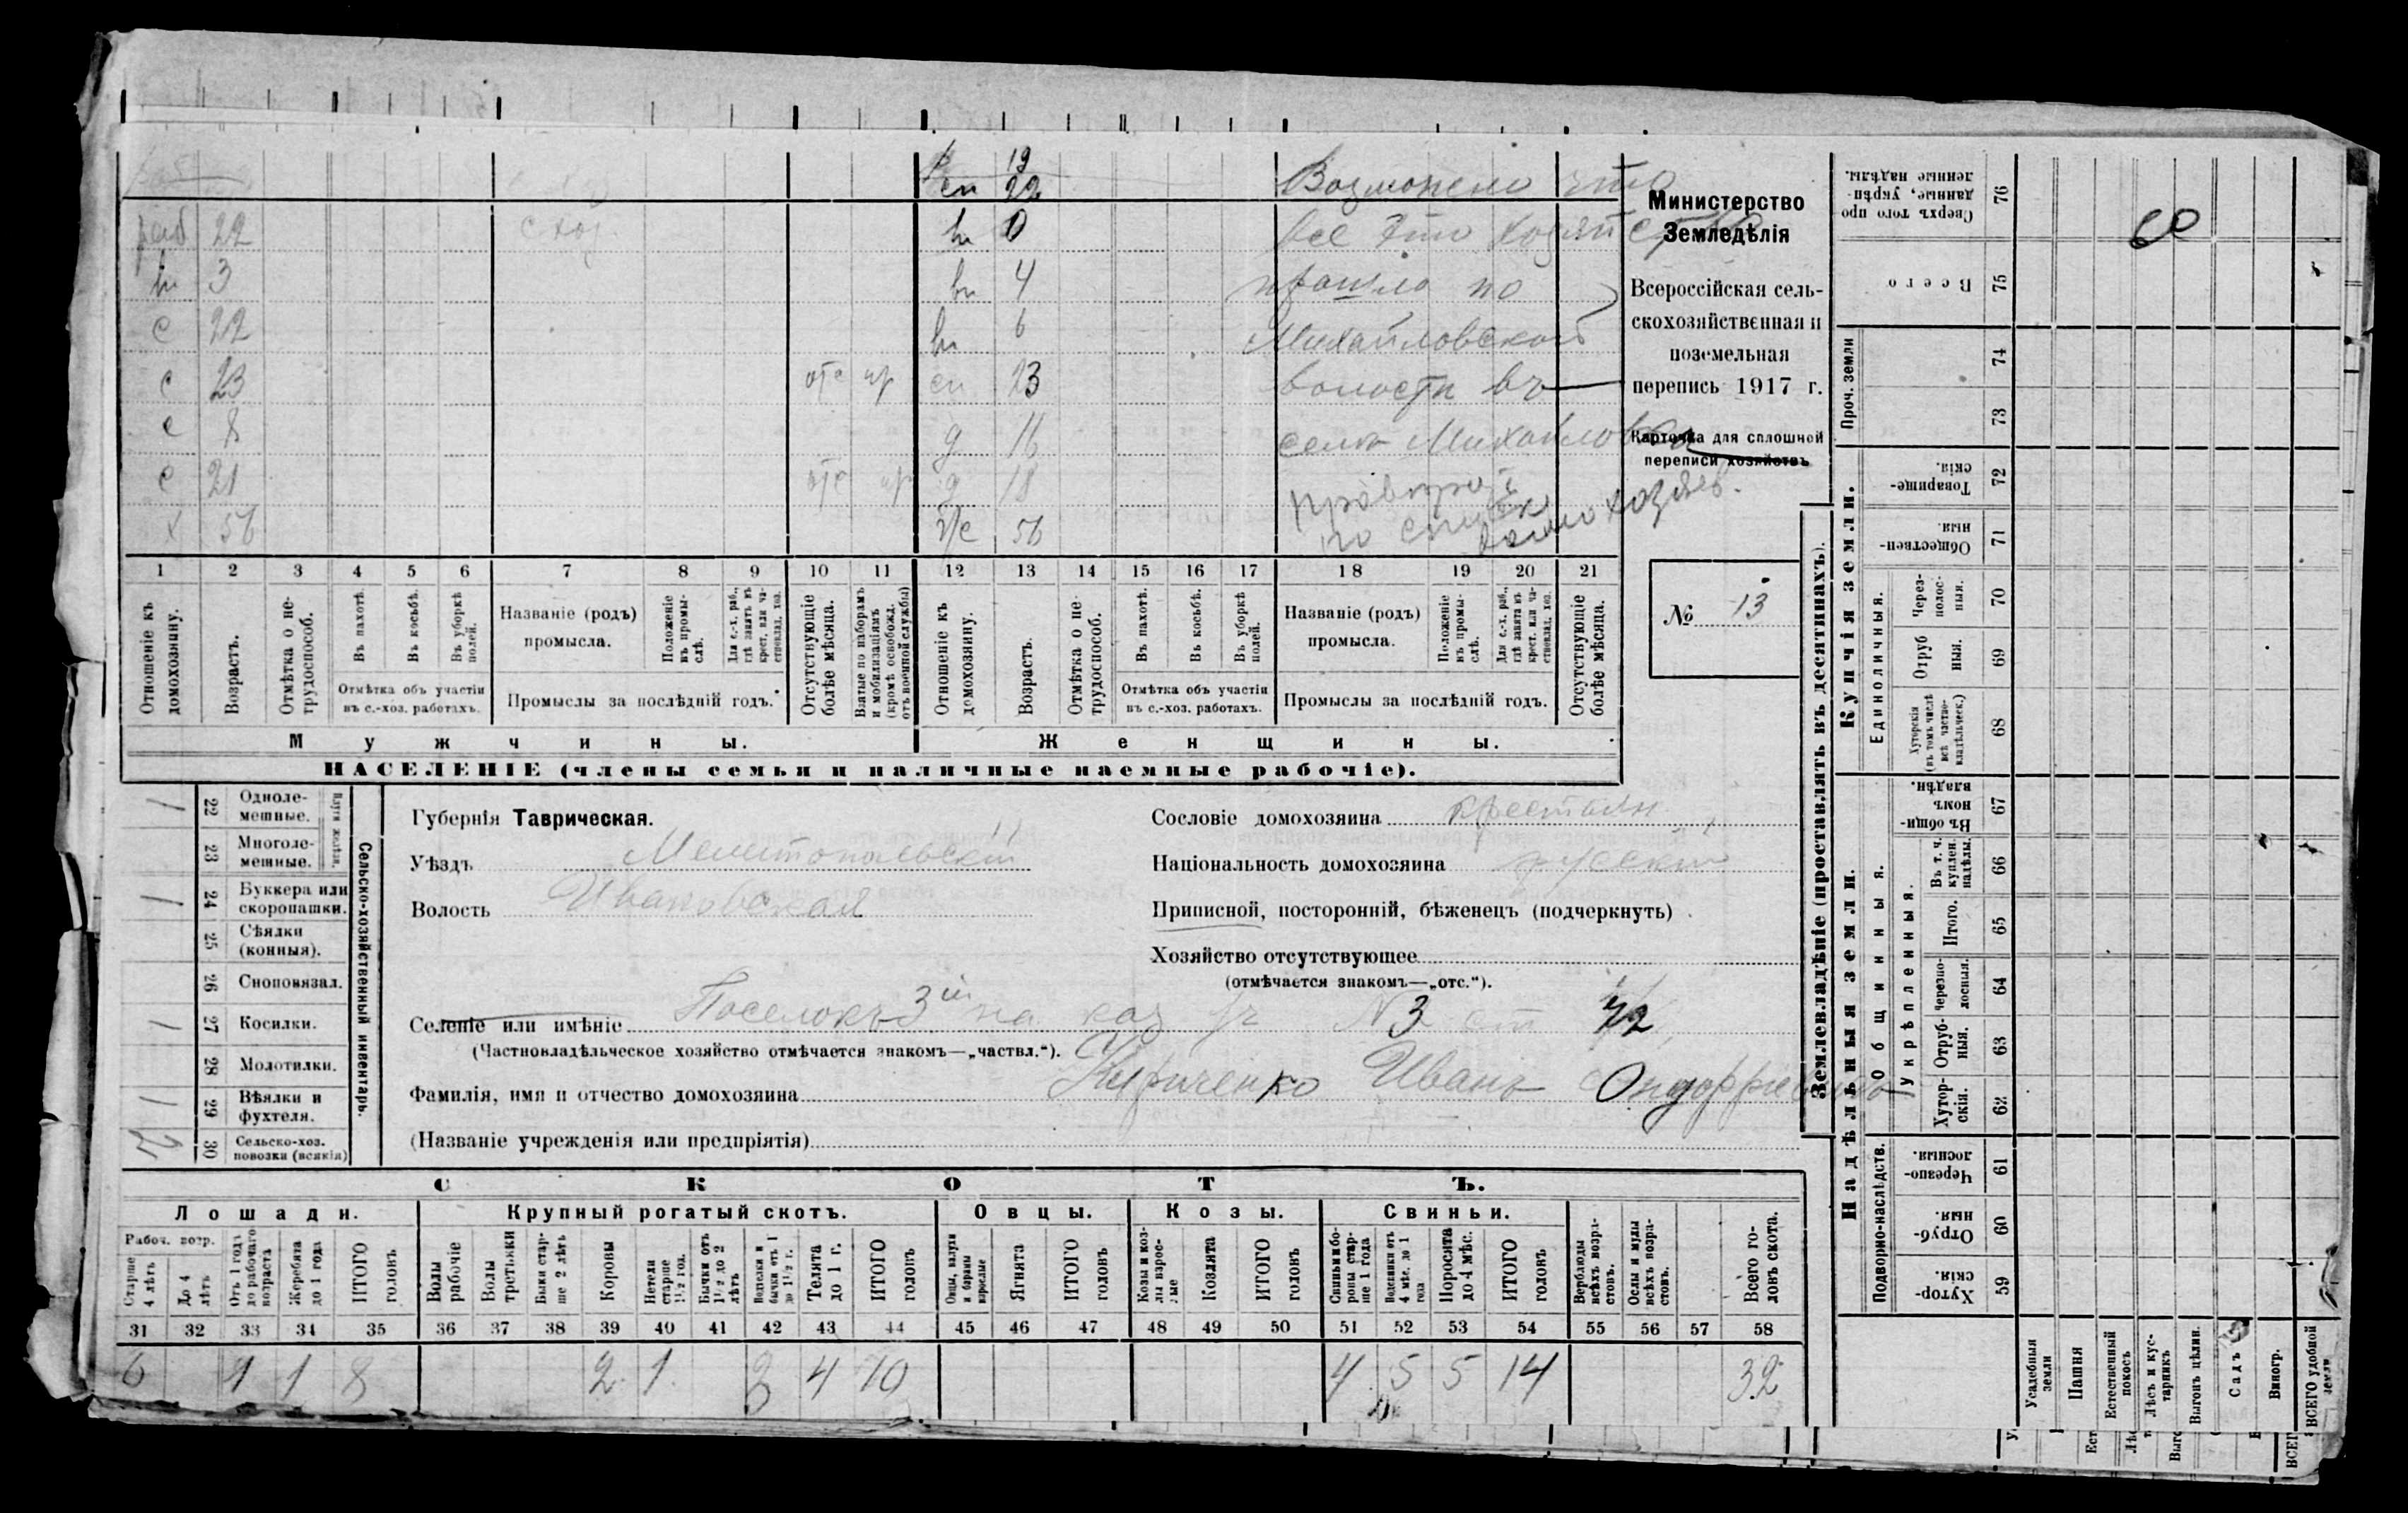 19
сп 22
Возможено что
раб 22
с хоз
вн 0
все это хозяйство
вн 3
вн 4
прошло по
с 22
вн 6
Михайловской
с 23
отс
пр
сп 23
волости въ
с 8
д 16
селѣ Михайловка
с 21
отс
пр
д 18
х 56
х/с 56
по списк домохозяев.
1 2 3 4 5 6 7 8 9 10 11 12 13 14 15 16 17 18 19 20 21
Отношеніе къ домохозяину.
Возрастъ.
Отмѣтка о нетрудоспособ.
Въ пахотѣ.
Въ косьбѣ.
Въ уборкѣ полей.
Отмѣтка объ участіи въ с.-хоз. работахъ.
Названіе (родъ) промысла.
Положеніе въ промыслѣ.
Для с.-х. раб., гдѣ занятъ въ крест. или частновлад. хоз.
Промыслы за послѣдній годъ.
Отсутствующіе болѣе мѣсяца.
Взятые по наборамъ и мобилизаціямъ (кромѣ освобожд. отъ военной службы)
Отношеніе къ домохозяину.
Возрастъ.
Отмѣтка о нетрудоспособ.
Въ пахотѣ.
Въ косьбѣ.
Въ уборкѣ полей.
Отмѣтка объ участіи въ с.-хоз. работахъ.
Названіе (родъ) промысла.
Положеніе въ промыслѣ.
Для с.-х. раб., гдѣ занята въ крест. или частновлад. хоз.
Промыслы за послѣдній годъ.
Отсутствующіе болѣе мѣсяца.
Мужчины.
Женщины.
НАСЕЛЕНІЕ (члены семьи и наличные наемные рабочіе).
Министерство
Земледѣлія
Всероссійская сель-
скохозяйственная и
поземельная
перепись 1917 г.
Карточка для сплошной
переписи хозяйствъ
№ 13
1 22 Однолемешные.
23 Многолемешные.
Плуги желѣзн.
1 24 Буккера или скоропашки.
25 Сѣялки (конныя).
26 Сноповязал.
1 27 Косилки.
28 Молотилки.
1 29 Вѣялки и фухтеля.
2 30 Сельско-хоз. повозки (всякія)
Сельско-хозяйственный инвентарь.
Губернія Таврическая.
Уѣздъ Мелитопольскій
Волость Ивановская
Сословіе домохозяина крестьян.
Національность домохозяина русскій
Приписной, посторонній, бѣженецъ (подчеркнуть)
Хозяйство отсутствующее
(отмѣчается знакомъ—„отс.“).
Селеніе или имѣніе Поселокъ 3ій на каз уч № 3 ст 42
(Частновладѣльческое хозяйство отмѣчается знакомъ—„частвл.“).
Фамилія, имя и отчество домохозяина Кириченко Иванъ
(Названіе учрежденія или предпріятія)
СКОТЪ.
Лошади.
Крупный рогатый скотъ.
Овцы.
Козы.
Свиньи.
Рабоч. возр.
Старше 4 лѣтъ
До 4 лѣтъ
Отъ 1 года до рабочаго возраста
Жеребята до 1 года
ИТОГО головъ
Волы рабочіе
Волы третьяки
Быки старше 2 лѣтъ
Коровы
Нетели старше 1½ год.
Бычки отъ 1½ до 2 лѣтъ
Телки и бычки отъ 1 до 1½ г.
Телята до 1 г.
ИТОГО головъ
Овцы, валухи и бараны взрослые
Ягнята
ИТОГО головъ
Козы и козлы взрослые
Козлята
ИТОГО головъ
Свиньи и бороны старше 1 года
Подсвинки отъ 4 мѣс. до 1 года
Поросята до 4 мѣс.
ИТОГО головъ
Верблюды всѣхъ возрастовъ.
Ослы и мулы всѣхъ возрастовъ.
Всего головъ скота.
31 32 33 34 35 36 37 38 39 40 41 42 43 44 45 46 47 48 49 50 51 52 53 54 55 56 57 58
6 1 1 8 2 1 3 4 10 4 5 5 14 32
Землевладѣніе (проставлять въ десятинахъ).
Надѣльныя земли.
Купчія земли.
Проч. земли
Подворно-наслѣдств.
Общинныя.
Укрѣпленныя.
Единоличныя.
Сверхъ того проданные, укрѣпленные надѣлы. 76
60
Всего 75
74
73
Товарищескія. 72
Общественныя. 71
Черезполосныя. 70
Отрубныя. 69
Хуторскія (въ томъ числѣ всѣ частновладѣльческ.) 68
Въ общинномъ владѣн. 67
Въ т. ч. куплен. надѣлы. 66
Итого. 65
Черезполосныя. 64
Отрубныя. 63
Хуторскія. 62
Черезполосныя. 61
Отрубныя. 60
Хуторскія. 59
Усадебныя земли
Пашня
Естественный покосъ
Лѣсъ и кустарникъ
Выгонъ цѣлин.
Садъ
Виногр.
ВСЕГО удобной земли